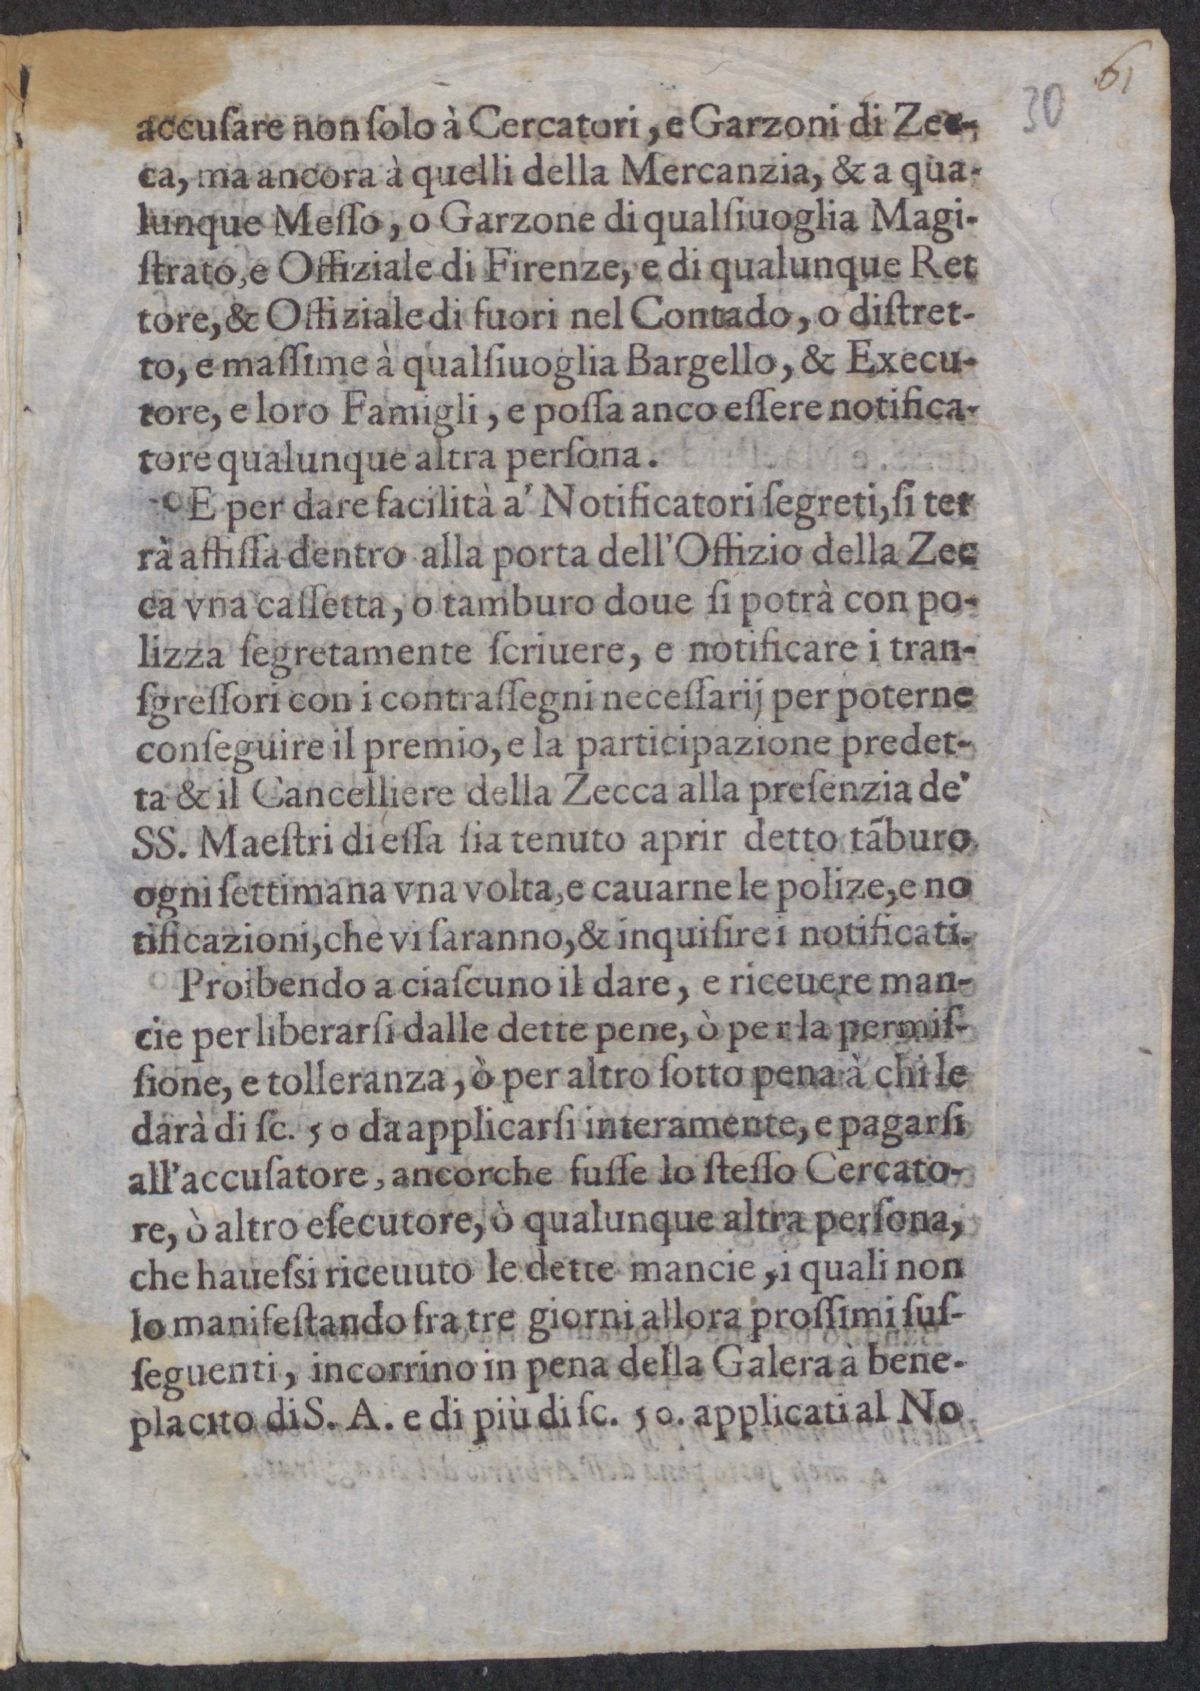 61
30
accuſare non ſolo à Cercatori, e Garzoni di Zec-
ca, ma ancora à quelli della Mercanzia, & a qua-
lunque Meſſo, o Garzone di qualſiuoglia Magi-
ſtrato, e Offiziale di Firenze, e di qualunque Ret
tore, & Offiziale di fuori nel Contado, o diſtret-
to, e maſſime à qualſiuoglia Bargello, & Execu-
tore, e loro Famigli, e poſſa anco eſſere notifica-
tore qualunque altra perſona.
E per dare facilità a' Notificatori ſegreti, ſi ter
rà affiſſa dentro alla porta dell'Offizio della Zec
ca vna caſſetta, o tamburo doue ſi potrà con po-
lizza ſegretamente ſcriuere, e notificare i tran-
ſgreſſori con i contraſſegni neceſſarij per poterne
conſeguire il premio, e la participazione predet-
ta & il Cancelliere della Zecca alla preſenzia de'
SS. Maeſtri di eſſa ſia tenuto aprir detto tãburo
ogni ſettimana vna volta, e cauarne le polize, e no
tificazioni, che vi ſaranno, & inquiſire i notificati.
Proibendo a ciaſcuno il dare, e riceuere man-
cie per liberarſi dalle dette pene, ò per la permiſ-
ſione, e tolleranza, ò per altro ſotto pena à chi le
darà di ſc. 50 da applicarſi interamente, e pagarſi
all'accuſatore, ancorche fuſſe lo ſteſſo Cercato-
re, ò altro eſecutore, ò qualunque altra perſona,
che haueſsi riceuuto le dette mancie, i quali non
lo manifeſtando fra tre giorni allora proſſimi ſuſ-
ſeguenti, incorrino in pena della Galera à bene-
placito di S. A. e di più di ſc. 50. applicati al No